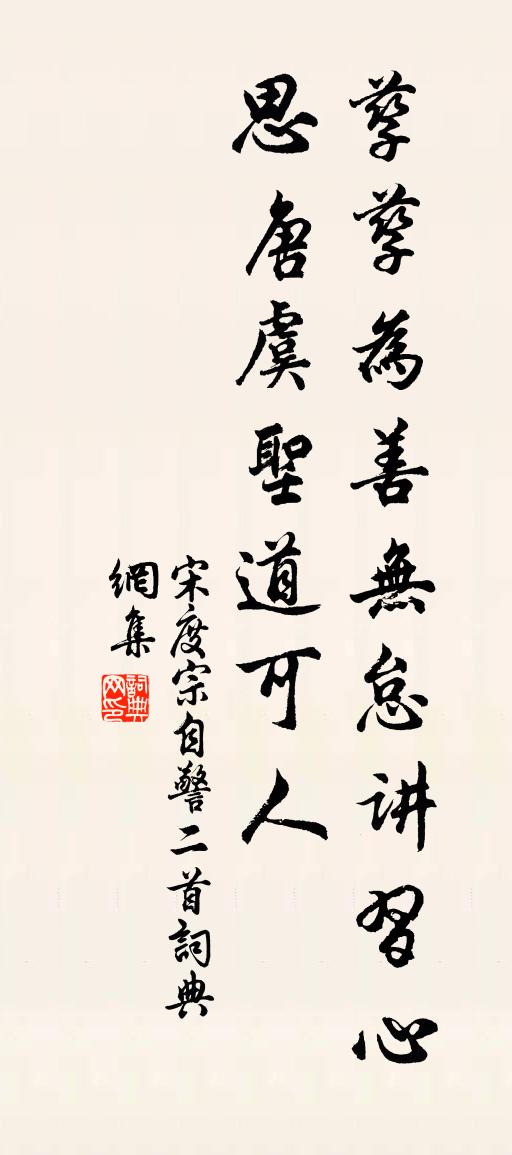 孳孳為善無怠讲習心
思唐虞聖道可人
宋度宗自警二首詞典
網集
詞典網印